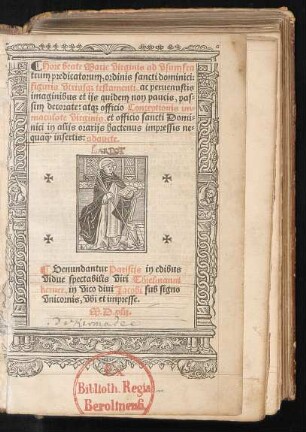 Hore beate Marie Virginis ad Usum fra
trum predicatorum, ordinis sancti dominici:
figuris Utriusq; testamenti. ac peruenustis
imaginibus et iis quidem non paucis, pas-
sim decorate: atqz officio Conceptionis im-
maculate Virginis. et officio sancti Domi-
nici in aliis orariis hactenus impressis ne-
quaqz insertis: adaucte.
Venundantur Parisiis in edibus
Vidue spectabilis Viri Thielmanni
keruer, in Vico diui Iacobi sub signo
Unicornis, Vbi et impresse.
EX
Biblioth. Regia
Berolinensi.